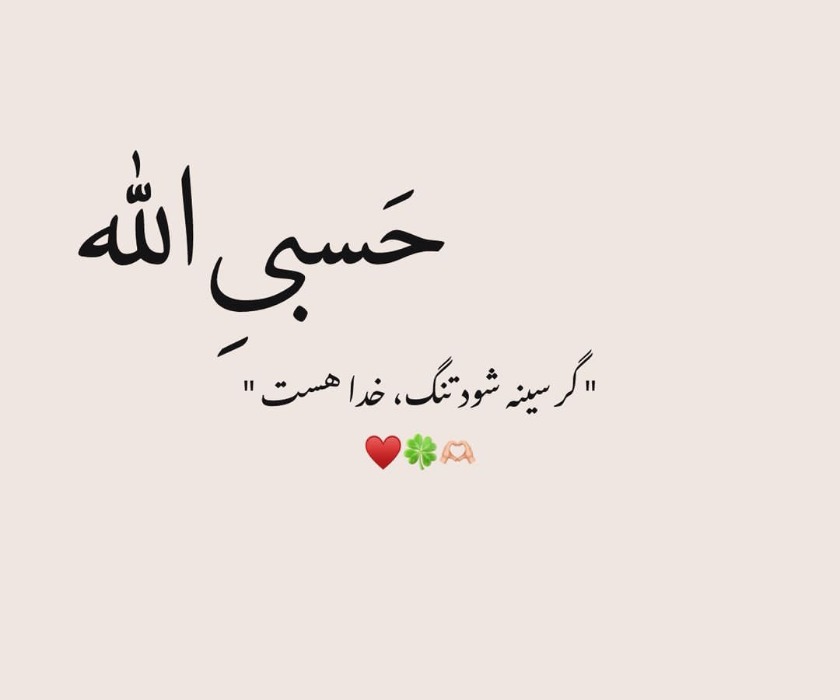 حَسبیِ الله
"گر سینه شود تنگ، خدا هست"
🫶🏻🍀♥️